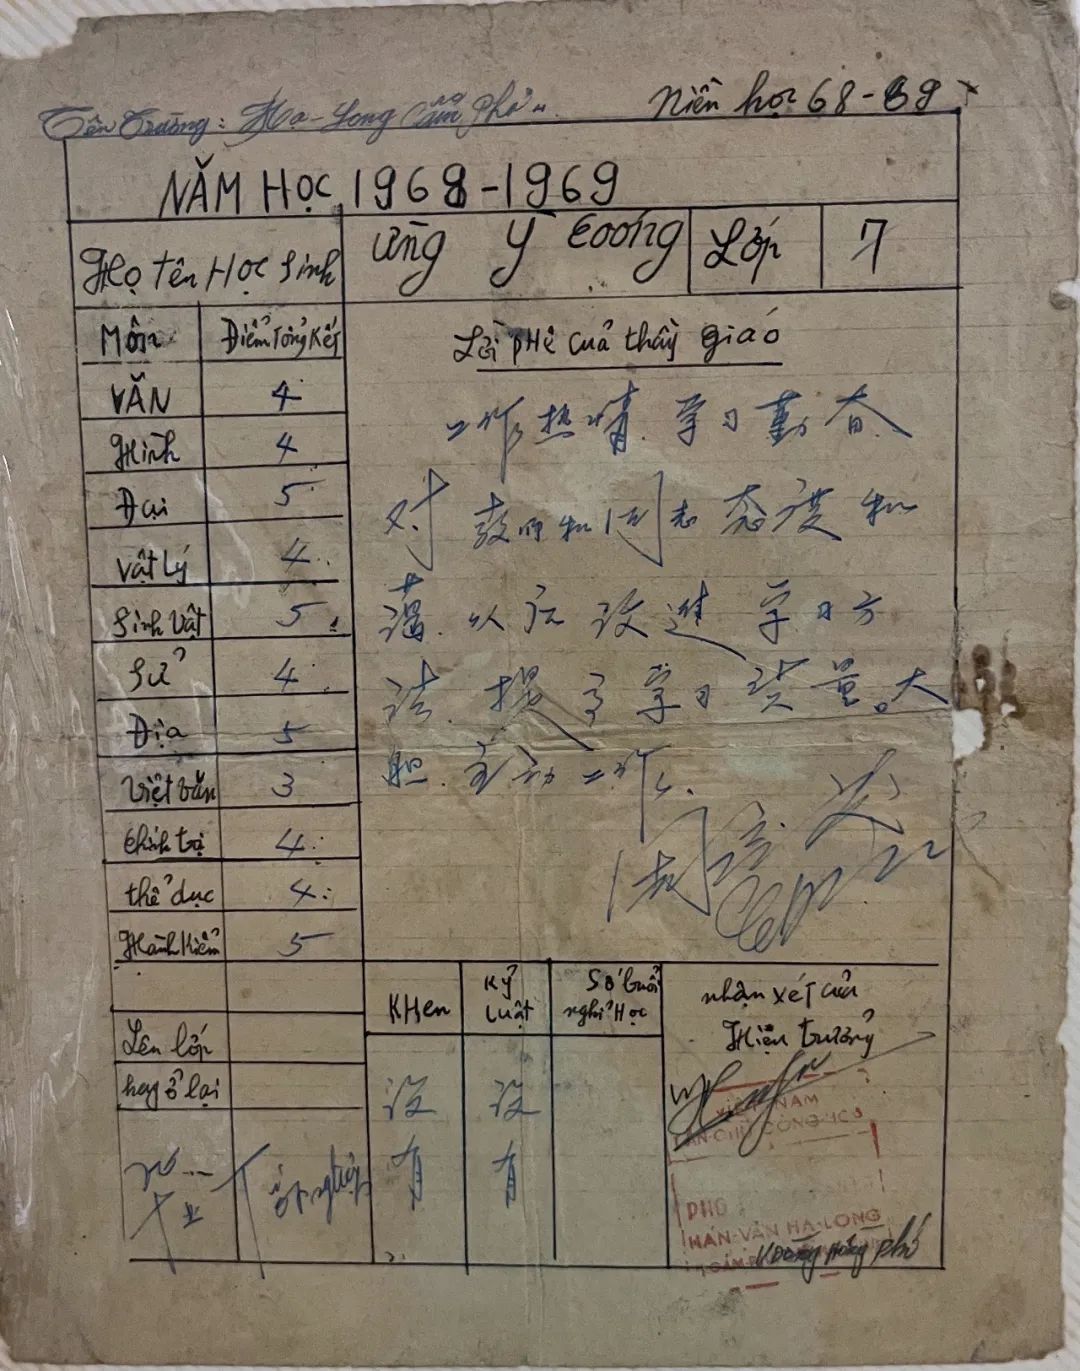 Tên Trường: Hạ-Long Cẩm Phả
Niên học 68-69
NĂM HỌC 1968-1969
Họ tên Học Sinh
Ưng Y Coóng
Lớp
7
Môn
Điểm Tổng Kết
Lời PHê của thầy giáo
VĂN 4
Hình 4
Đại 5
Vật Lý 4
Sinh Vật 5
Sử 4
Địa 5
Việt văn 3
Chính trị 4
thể dục 4
Hạnh Kiểm 5
工作热情.学习勤奋
对教师和同志态度和
蔼.以后改进学习方
法.提高学习质量。大
胆.主动工作.
Lên lớp
hay ở lại
毕业
Tốt nghiệp
KHen
Kỷ Luật
Số buổi nghỉ Học
nhận xét của
Hiệu trưởng
没有
没有
VIỆT NAM
DÂN CHỦ CỘNG HOÀ
PHỔ
HÁN-VĂN HẠ-LONG